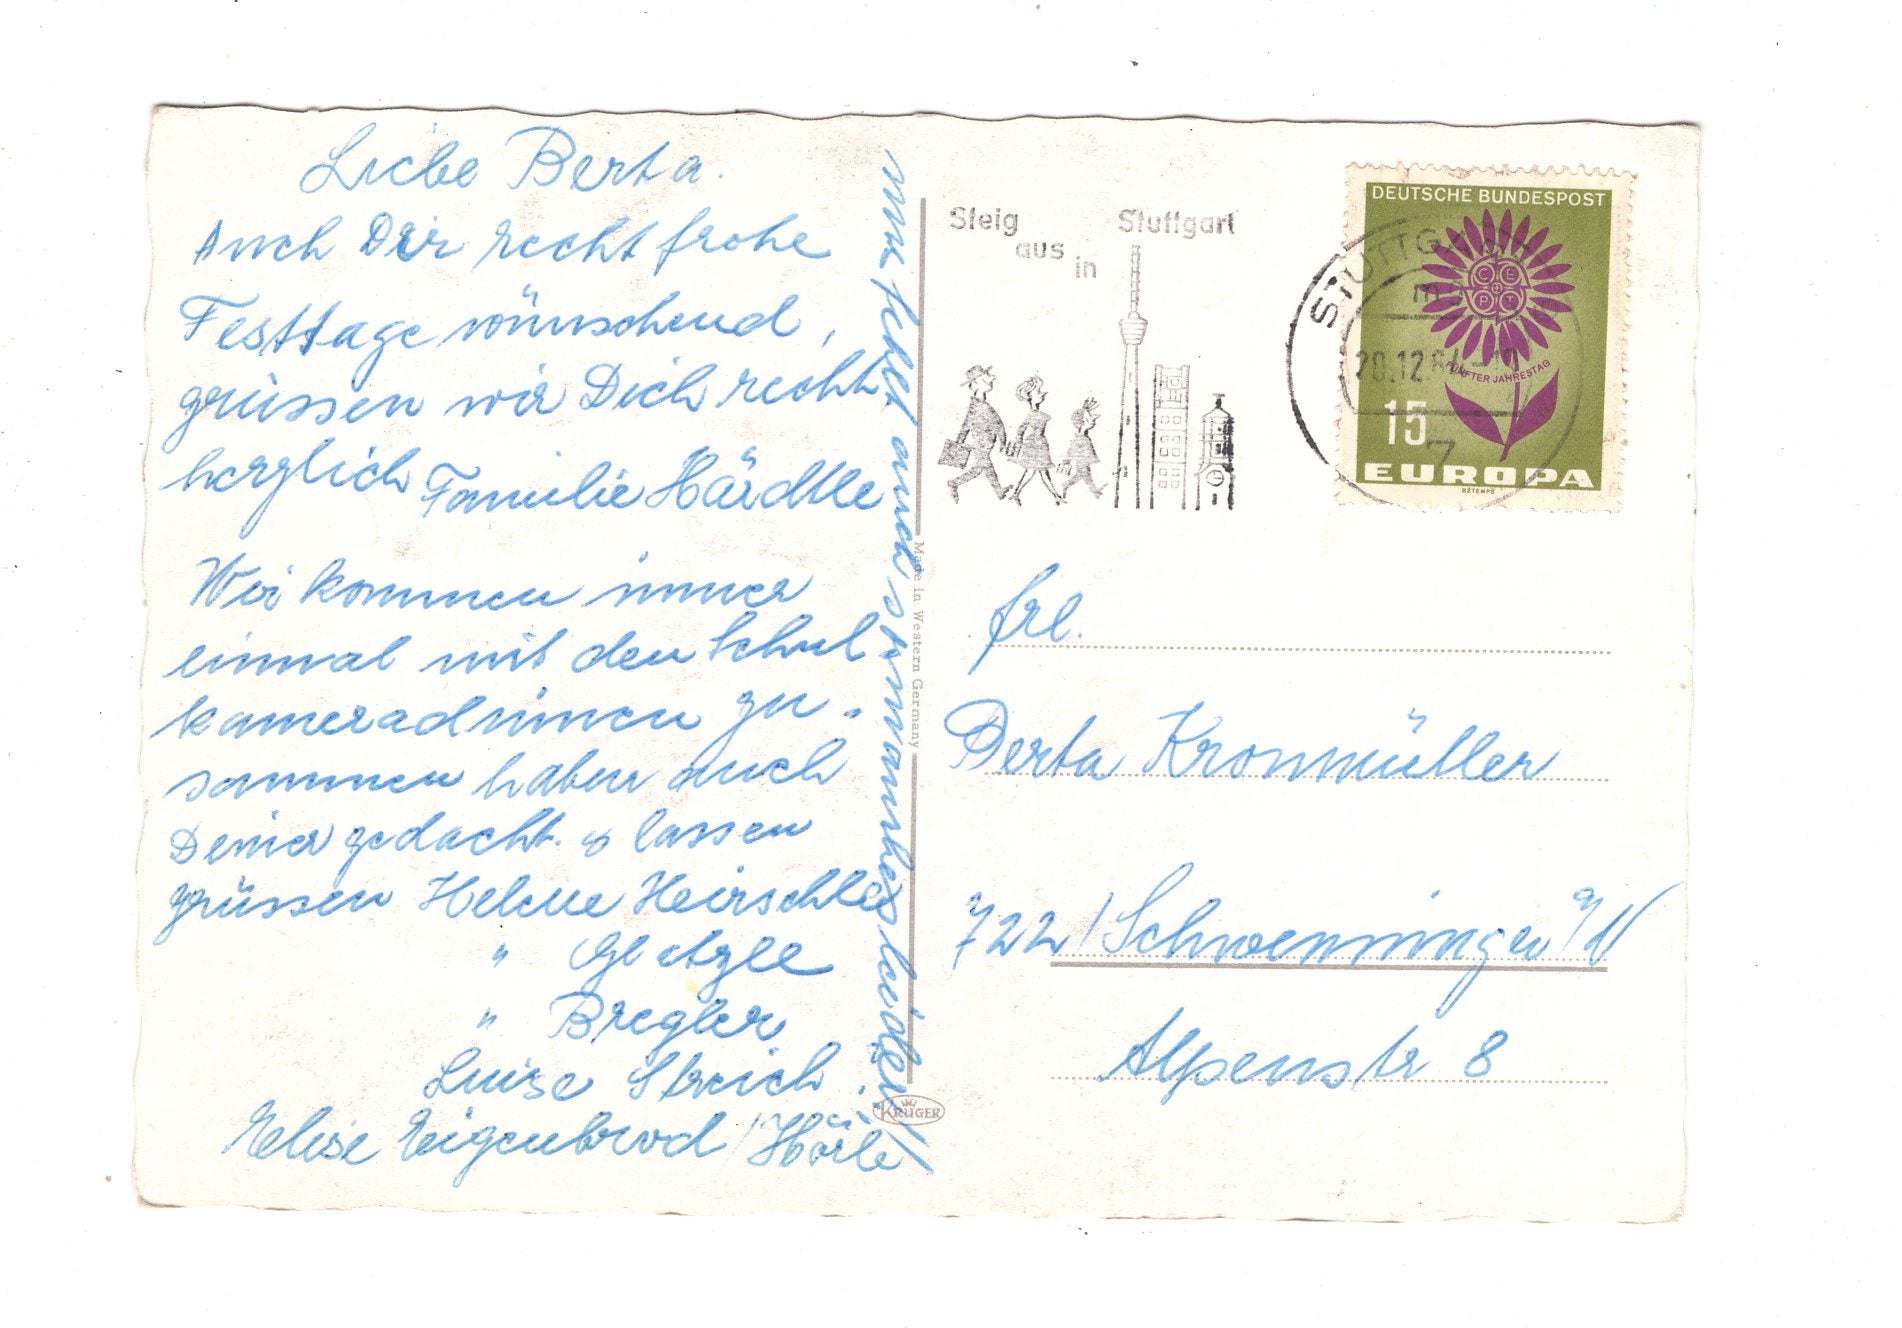 Liebe Berta.
Auch Dir recht frohe
Festtage wünschend,
grüssen wir Dich recht
herzlich Familie Härdtle
Wir kommen immer
einmal mit den Schul
kameradinnen zu-
sammen haben auch
Deiner gedacht. & lassen
grüssen Helene Heirschle
" Glatzle
" Bregler
Luise Streich
Elise Eigenbrod / Härle
auch
leider
Steig
aus
in
Stuttgart
STUTTGART
20.12.64-19
7
DEUTSCHE BUNDESPOST
C E
P T
FÜNFTER JAHRESTAG
15
EUROPA
BÉTEMPS
Made in Western Germany
KRÜGER
Frl.
Berta Kronmüller
722 / Schwenningen a/N
Alpenstr 8